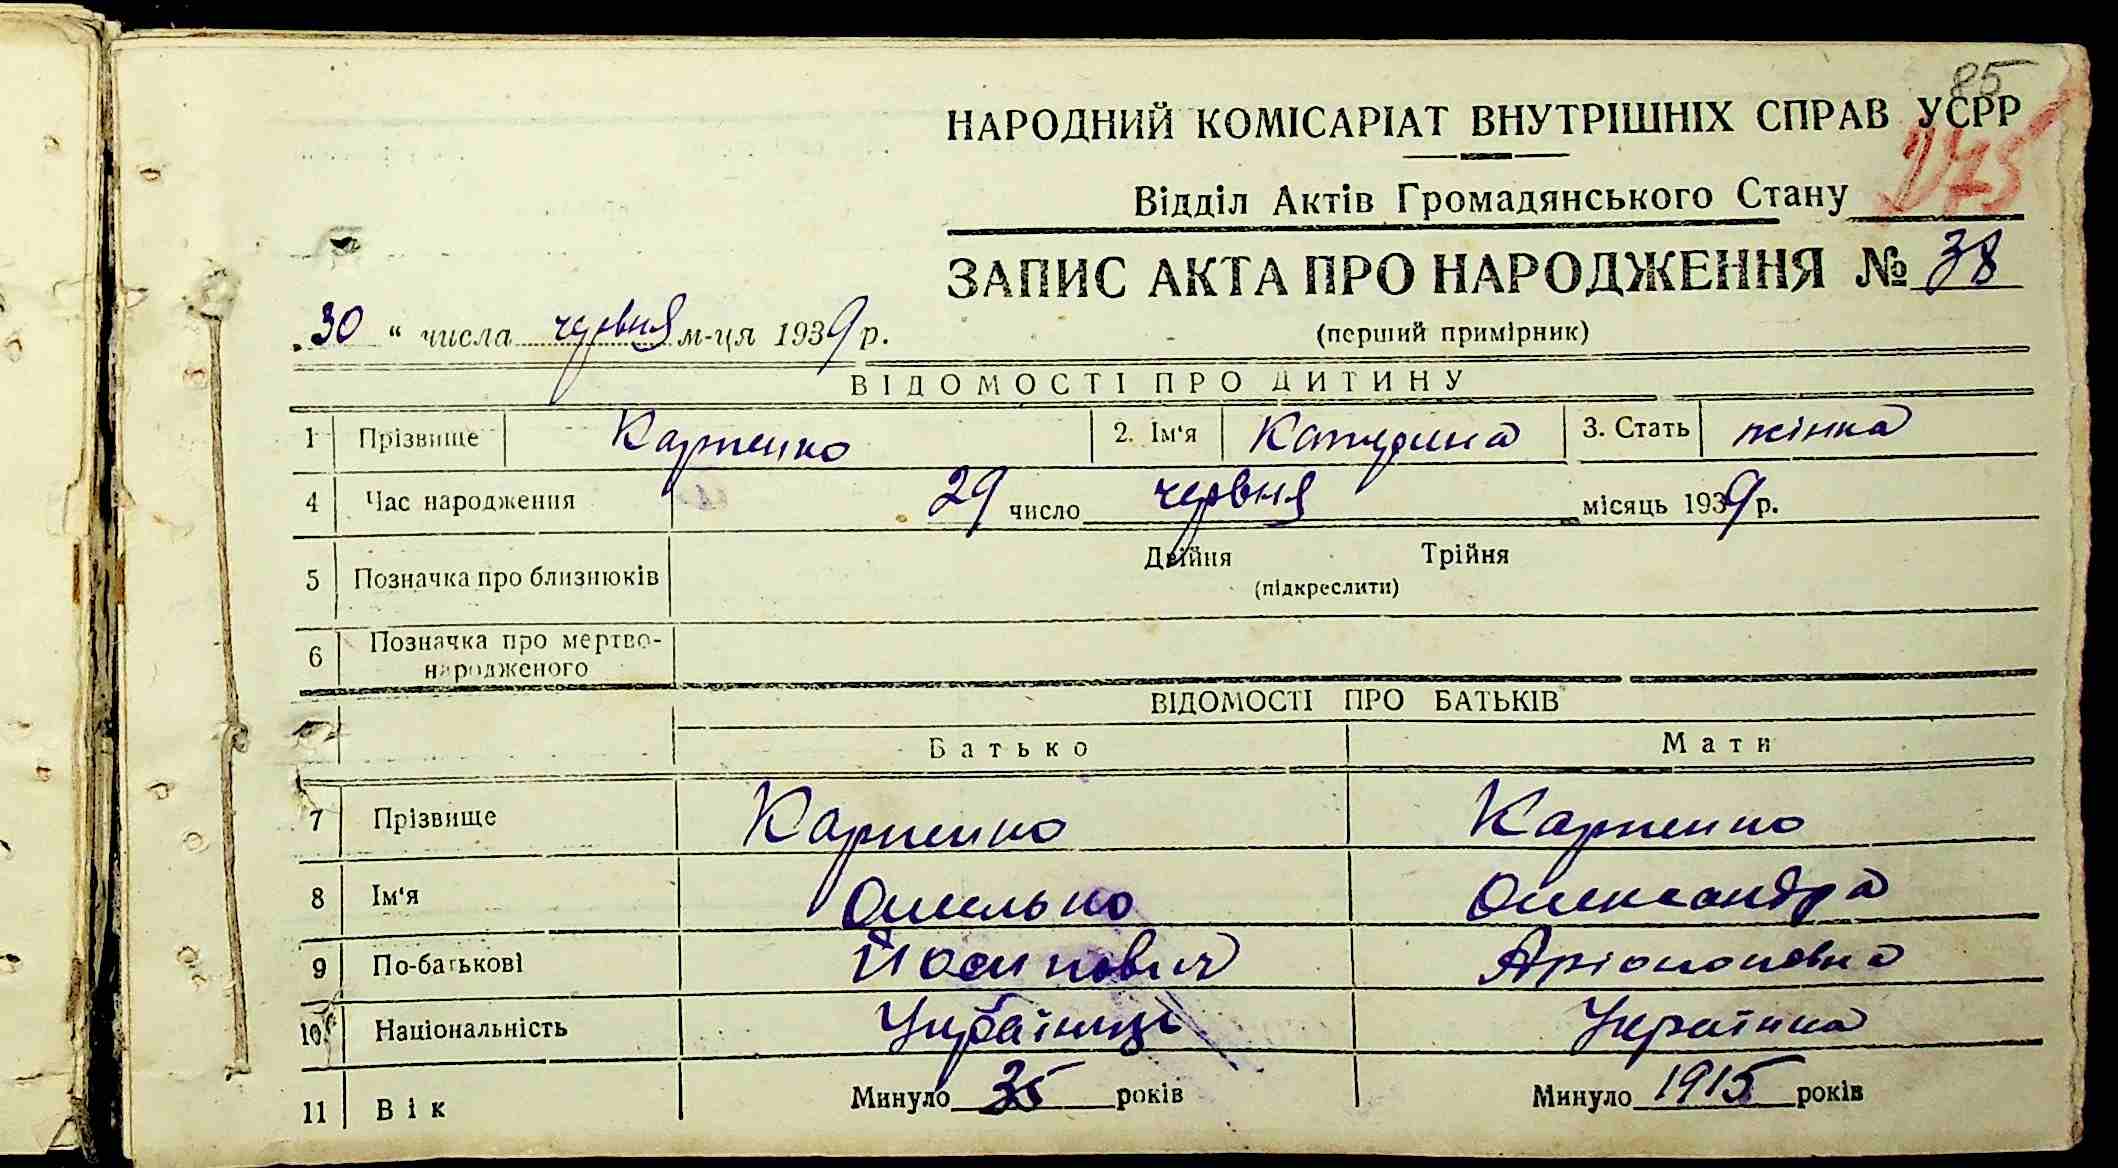 85
НАРОДНИЙ КОМІСАРІАТ ВНУТРІШНІХ СПРАВ УСРР
Відділ Актів Громадянського Стану
ЗАПИС АКТА ПРО НАРОДЖЕННЯ № 38
(перший примірник)
30 “ числа червня м-ця 1939 р.
ВІДОМОСТІ ПРО ДИТИНУ
1 Прізвище Карпенко 2. Ім‘я Катерина 3. Стать жінка
4 Час народження 29 число червня місяць 1939 р.
5 Позначка про близнюків Двійня Трійня
(підкреслити)
6 Позначка про мертво-
народженого
ВІДОМОСТІ ПРО БАТЬКІВ
Батько Мати
7 Прізвище Карпенко Карпенко
8 Ім‘я Омелько Олександра
9 По-батькові Йосипович
10 Національність Українець Українка
11 Вік Минуло 35 років Минуло 1915 років